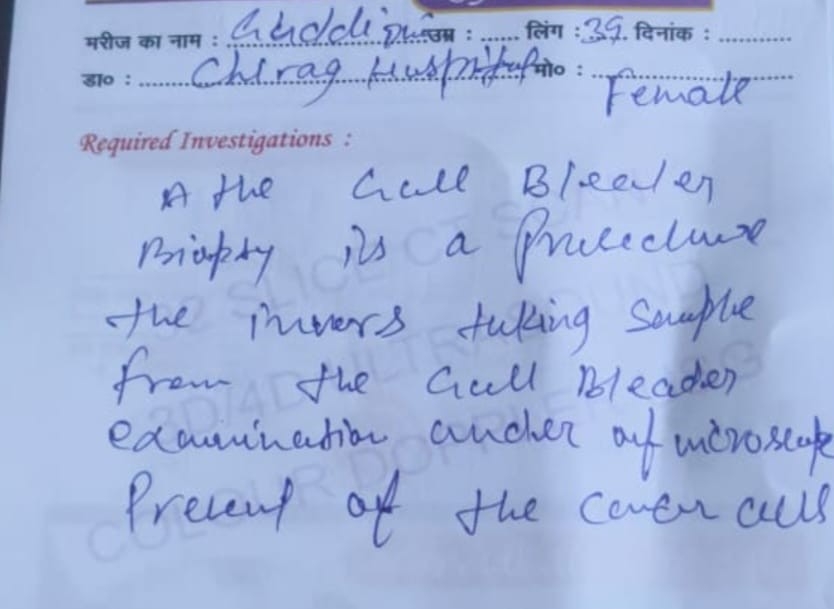 मरीज का नाम : Guddi उम्र : ...... लिंग : 39. दिनांक : ............
डा० : Chirag Huspital मो० : ............
Female
Required Investigations :
A the Gall Bleader
Biopsy is a Preecedure
the invers tuking Sample
from the Gall Bleader
examination under of microscope
Present of the cancer cells
32 SLICE CT SCAN
3D/4D ULTRASOUND
COLOUR DOPPLER